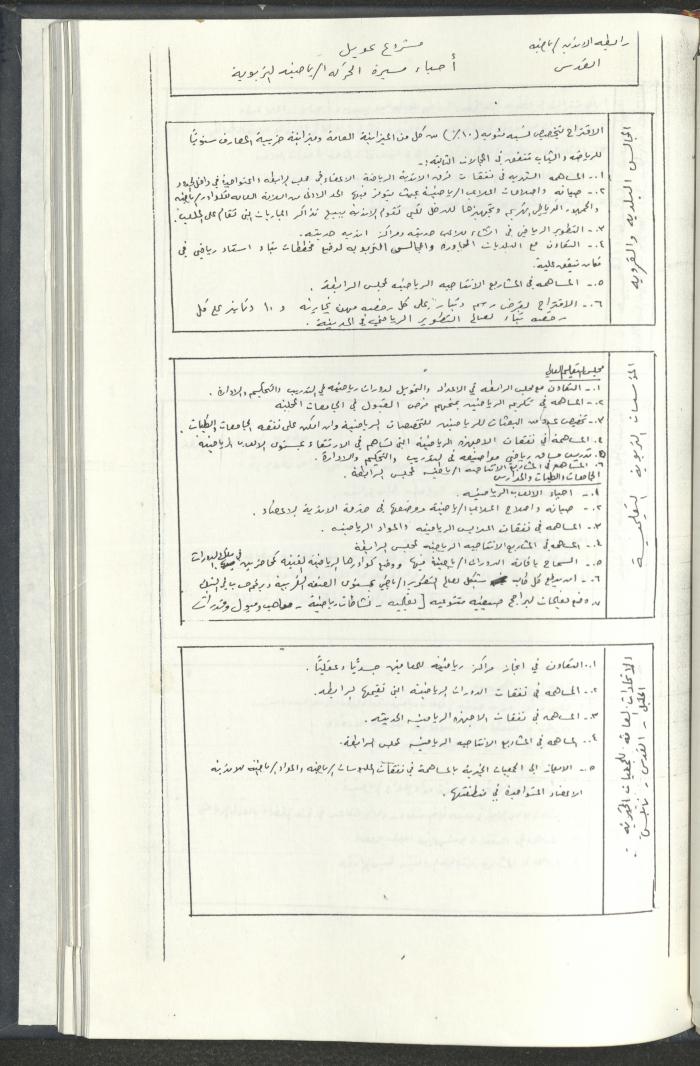 رابطة الاندية الرياضية
القدس
مشروع تمويل
أحياء مسيرة الحركة الرياضية التربوية
المجالس البلدية والقروية
الاقتراح لتخصيص نسبة مئوية (١٠٪) من كل من الميزانية العامة وميزانية ضريبة المعارف سنويًا
للرياضة والشباب تنفق في المجالات التالية:-
١.- المساهمة السنوية في نفقات فرق الاندية الرياضية الاعضاء في مجلس الرابطة والمتواجدة في
٢.- صيانة واصلاحات الملاعب الرياضية بحيث يتوفر فيها الحد الادنى من السلامة العامة للكوادر الرياضية
والجمهور الرياضي الكريم وتجهيزها للدخل لكي تقوم الاندية ببيع تذاكر المباريات التي تقام على الملعب.
٣.- التطوير الرياضي في انشاء ملاعب حديثة ومراكز اندية حديثة.
٤.- التعاون مع البلديات المجاورة والمجالس القروية لوضع مخططات بناء استاد رياضي في
مكان متفق عليه.
٥.- المساهمة في المشاريع الانتاجية الرياضية لمجلس الرابطة.
٦.- الاقتراح لفرض رسم دينار على كل رخصة مهن تجارية و ١٠ دنانير على كل
رخصة بناء لصالح التطوير الرياضي في المدينة.
المؤسسات التربوية التعليمية
مجلس التعليم العالي
١.- التعاون مع مجلس الرابطة في الاعداد والتمويل لدورات رياضية في التدريب والتحكيم والادارة.
٢.- المساهمة في تكريم الرياضيين بمنحهم فرص القبول في الجامعات المحلية
٣.- تخصيص عدد من البعثات للرياضيين للتخصصات الرياضية وان امكن على نفقة الجامعات والكليات.
٤. المساهمة في نفقات الاجهزة الرياضية التي تساهم في الارتقاء بمستوى الالعاب الرياضية
٥. تدريس مساق رياضي مواضيعه في التدريب والتحكيم والادارة.
٦. المساهمة في المشاريع الانتاجية الرياضية لمجلس الرابطة.
الجامعات والكليات والمدارس
١.- احياء الالعاب الرياضية.
٢.- صيانة واصلاح الملاعب الرياضية ووضعها في خدمة الاندية الاعضاء.
٣.- المساهمة في نفقات الملابس الرياضية والمواد الرياضية.
٤.- المساهمة في المشاريع الانتاجية الرياضية لمجلس الرابطة
٥.- السماح باقامة الدورات الرياضية فيها ووضع كوادرها الرياضية الفنية كمحاضرين في الدورات
٦.- ان يدفع كل طالب شيكل لصالح التطوير الرياضي بمستوى الضفة الغربية
٧. وضع تعليمات لبرامج صيفية متنوعة [تعليمية - نشاطات رياضية - مواهب وميول وقدرات]
الاتحادات العامة للجمعيات الخيرية.
الخليل - القدس - نابلس
١.- التعاون في انجاز مراكز رياضية للمعاقين جسديًا وعقليًا.
٢.- المساهمة في نفقات الدورات الرياضية التي تقيمها الرابطة.
٣.- المساهمة في نفقات الاجهزة الرياضية الحديثة.
٤. المساهمة في المشاريع الانتاجية الرياضية لمجلس الرابطة.
٥.- الايعاز الى الجمعيات الخيرية بالمساهمة في نفقات الملبوسات الرياضية والمواد الرياضية للاندية
الاعضاء المتواجدة في منطقتها.